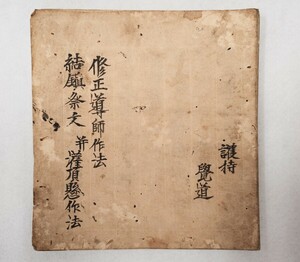 護持
覺道
修正導師作法
結願祭文并灌頂作法